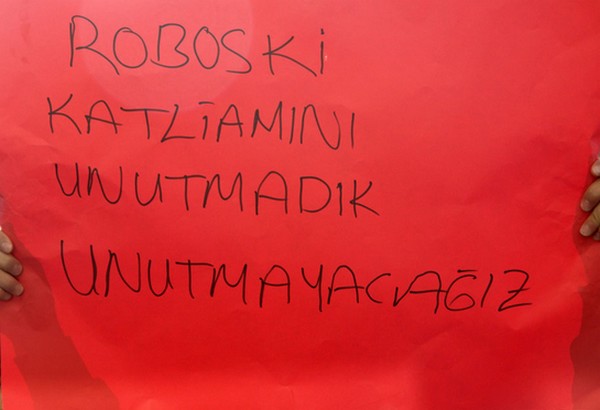 ROBOSKİ
KATLİAMINI
UNUTMADIK
UNUTMAYACAĞIZ